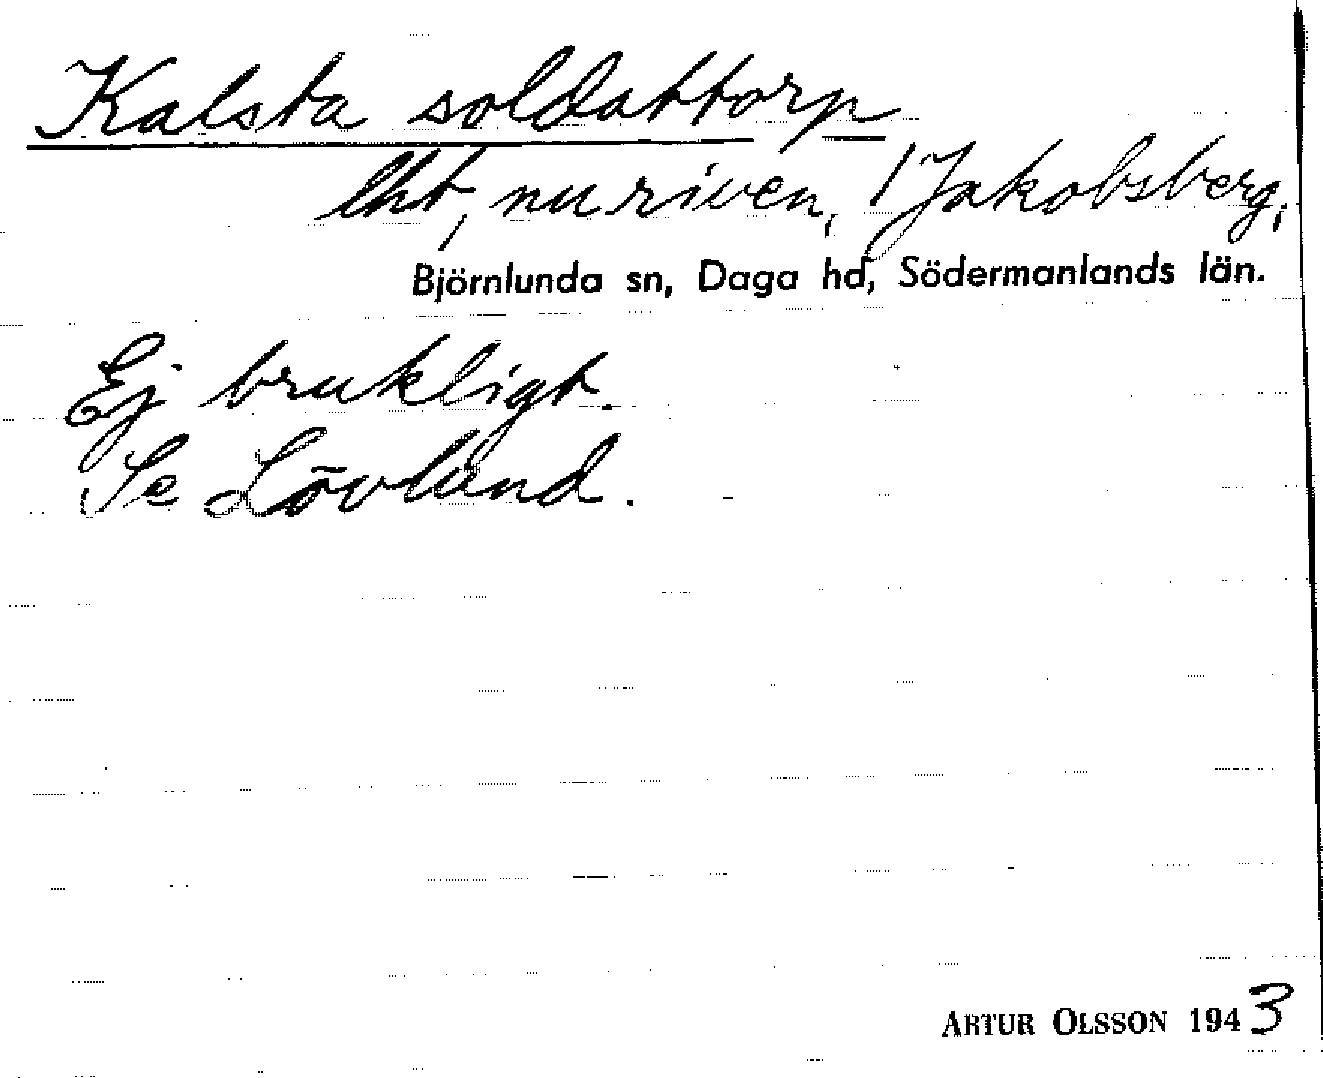 Kalsta soldattorp
lht, nu riven, / Jakobsberg,
Björnlunda sn, Daga hd, Södermanlands län.
Ej brukligt.
Se Lövlund.
ARTUR OLSSON 1943